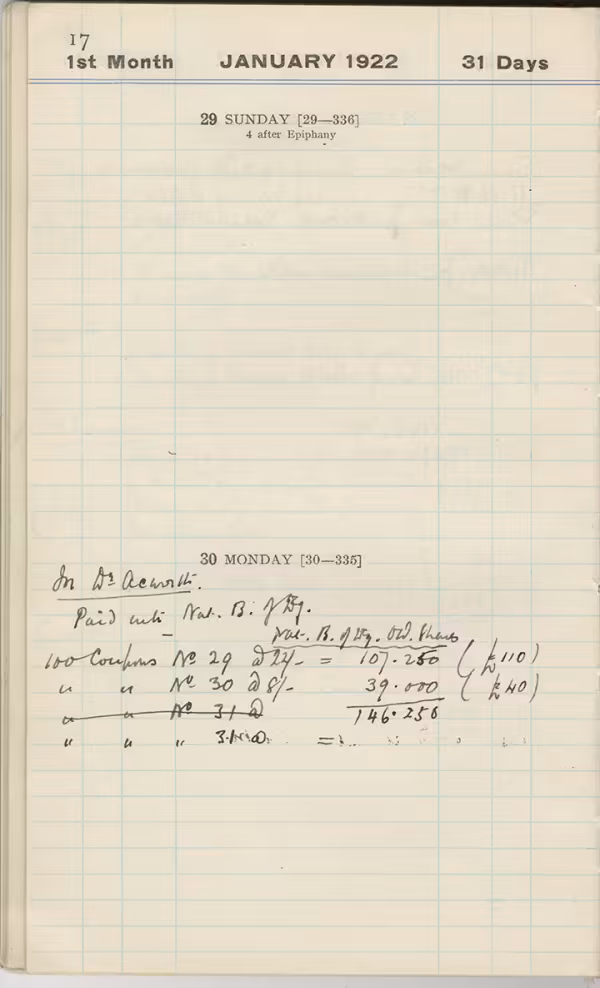 17
1st Month JANUARY 1922 31 Days
29 SUNDAY [29—336]
4 after Epiphany
30 MONDAY [30—335]
In Dr Acworth.
Paid into Nat. B. of Eg.
Nat. B. of Eg. Ord. Shares
100 Coupons No 29 @ 22/- = 107.250 (£110)
" " No 30 @ 8/- 39.000 (£40)
" " No 31 @ 146.250
" " " 31 @ =